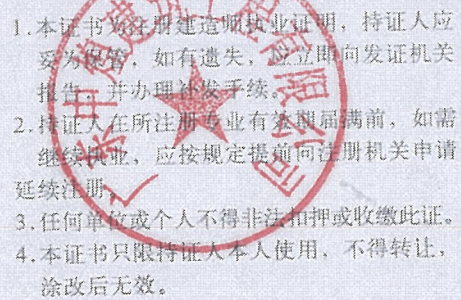 1.本证书为注册建造师执业证明，持证人应
妥为保管，如有遗失，应立即向发证机关
报告，并办理补发手续。
2.持证人在所注册专业有效期届满前，如需
继续执业，应按规定提前向注册机关申请
延续注册。
3.任何单位或个人不得非法扣押或收缴此证。
4.本证书只限持证人本人使用，不得转让，
涂改后无效。
广东中
建
有限公司